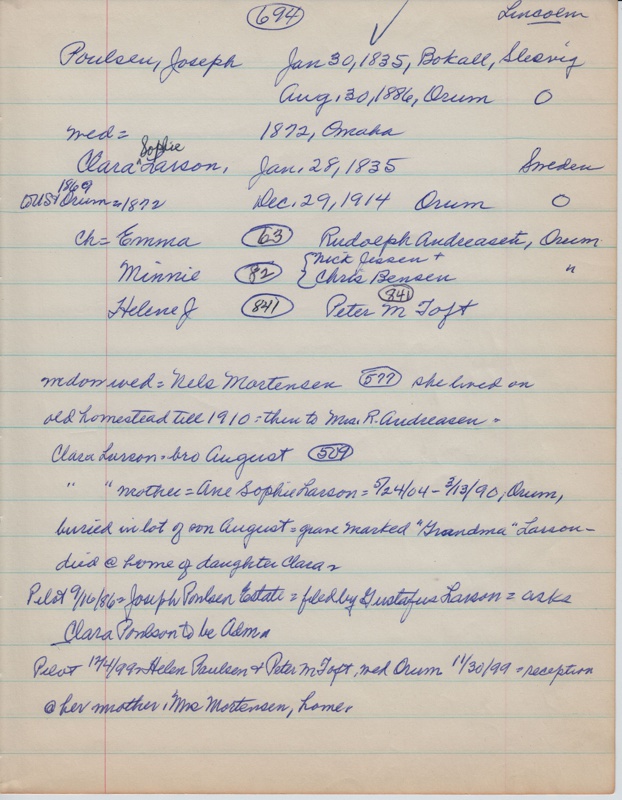 694 Lincoln
Poulsen, Joseph Jan 30, 1835, Bokall, Slesvig
Aug. 30, 1886, Orum O
wed = 1872, Omaha
Clara Sophie Larson, Jan. 28, 1835 Sweden
US 1869 Orum = 1872 Dec. 29, 1914 Orum O
ch = Emma 63 Rudolph Andreasen, Orum
Minnie 82 { Nick Jessen + Chris Bensen "
Helene J 841 Peter M Toft 841
widow wed = Nels Mortensen 577 she lived on
old homestead till 1910 = then to Mrs. R. Andreasen -
Clara Larson = bro August 509
" " mother = Ane Sophie Larson = 5/24/04 - 3/13/90, Orum,
buried in lot of son August = grave marked "Grandma" Larson -
died @ home of daughter Clara
Pilot 9/16/86 = Joseph Poulsen Estate = filed by Gustafus Larson = asks
Clara Poulson to be Adm
Pilot 12/4/99 = Helen Paulsen & Peter M Toft, wed Orum 11/30/99 = reception
@ her mother, Mrs Mortensen, home.